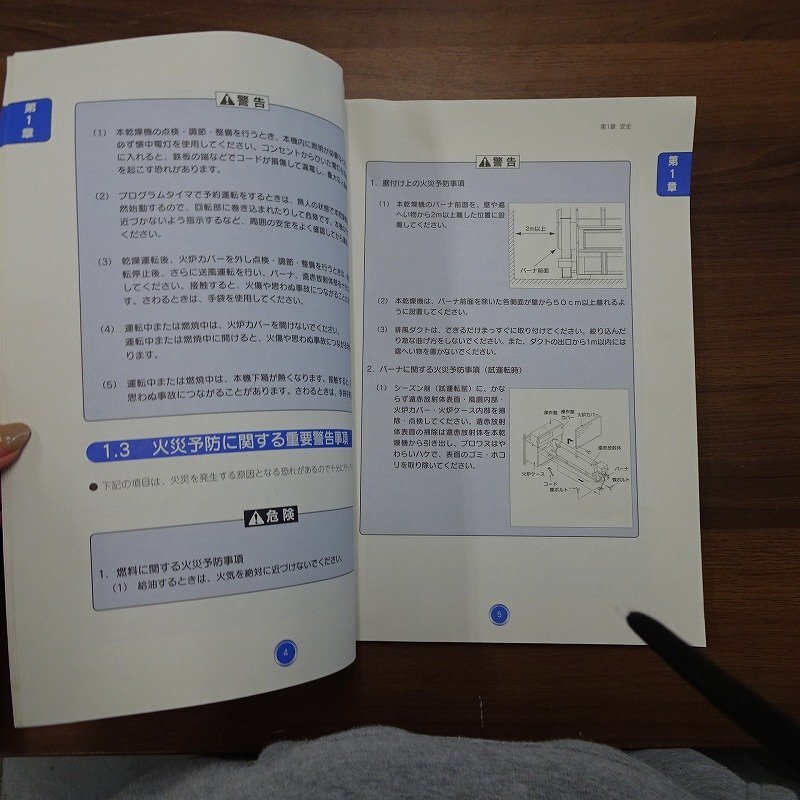 第1章
警告
(1) 本乾燥機の点検・調節・整備を行うとき、本機内に照明が必要な
必ず懐中電灯を使用してください。コンセントからひいた電灯を
に入れると、鉄板の端などでコードが損傷して漏電し、
を起こす恐れがあります。
(2) プログラムタイマで予約運転をするときは、無人の状態で
然始動するので、回転部に巻き込まれたりして危険です。
近づかないよう指示するなど、周囲の安全をよく確認してから
ください。
(3) 乾燥運転後、火炉カバーを外し点検・調節・整備を行うときは、
転停止後、さらに送風運転を行い、バーナ、遠赤放射体部を
してください。接触すると、火傷や思わぬ事故につながることが
す。さわるときは、手袋を使用してください。
(4) 運転中または燃焼中は、火炉カバーを開けないでください。
運転中または燃焼中に開けると、火傷や思わぬ事故につながる
ります。
(5) 運転中または燃焼中は、本機下箱が熱くなります。接触すると
思わぬ事故につながることがあります。さわるときは、手袋を
1.3 火災予防に関する重要警告事項
● 下記の項目は、火災を発生する原因となる恐れがあるので十分に
危険
1. 燃料に関する火災予防事項
(1) 給油するときは、火気を絶対に近づけないでください。
4
第1章 安全
第1章
警告
1. 据付け上の火災予防事項
(1) 本乾燥機のバーナ前面を、壁や遮
へい物から2m以上離した位置に設
置してください。
2m以上
バーナ前面
(2) 本乾燥機は、バーナ前面を除いた各側面が壁から50cm以上離れるよ
うに設置してください。
(3) 排風ダクトは、できるだけまっすぐに取り付けてください。絞り込んだ
り急な曲げ方をしないでください。また、ダクトの出口から1m以内には
遮へい物を置かないでください。
2. バーナに関する火災予防事項（試運転時）
(1) シーズン前（試運転前）に、かな
らず遠赤放射体表面・風胴内部・
火炉カバー・火炉ケース内部を掃
除・点検してください。遠赤放射
体表面の掃除は遠赤放射体を本乾
燥機から引き出し、ブロワスはや
わらいハケで、表面のゴミ・ホコ
リを取り除いてください。
操作盤
操作盤
カバー
火炉カバー
遠赤放射体
バーナ
蝶ボルト
火炉ケース
コード
蝶ボルト
5